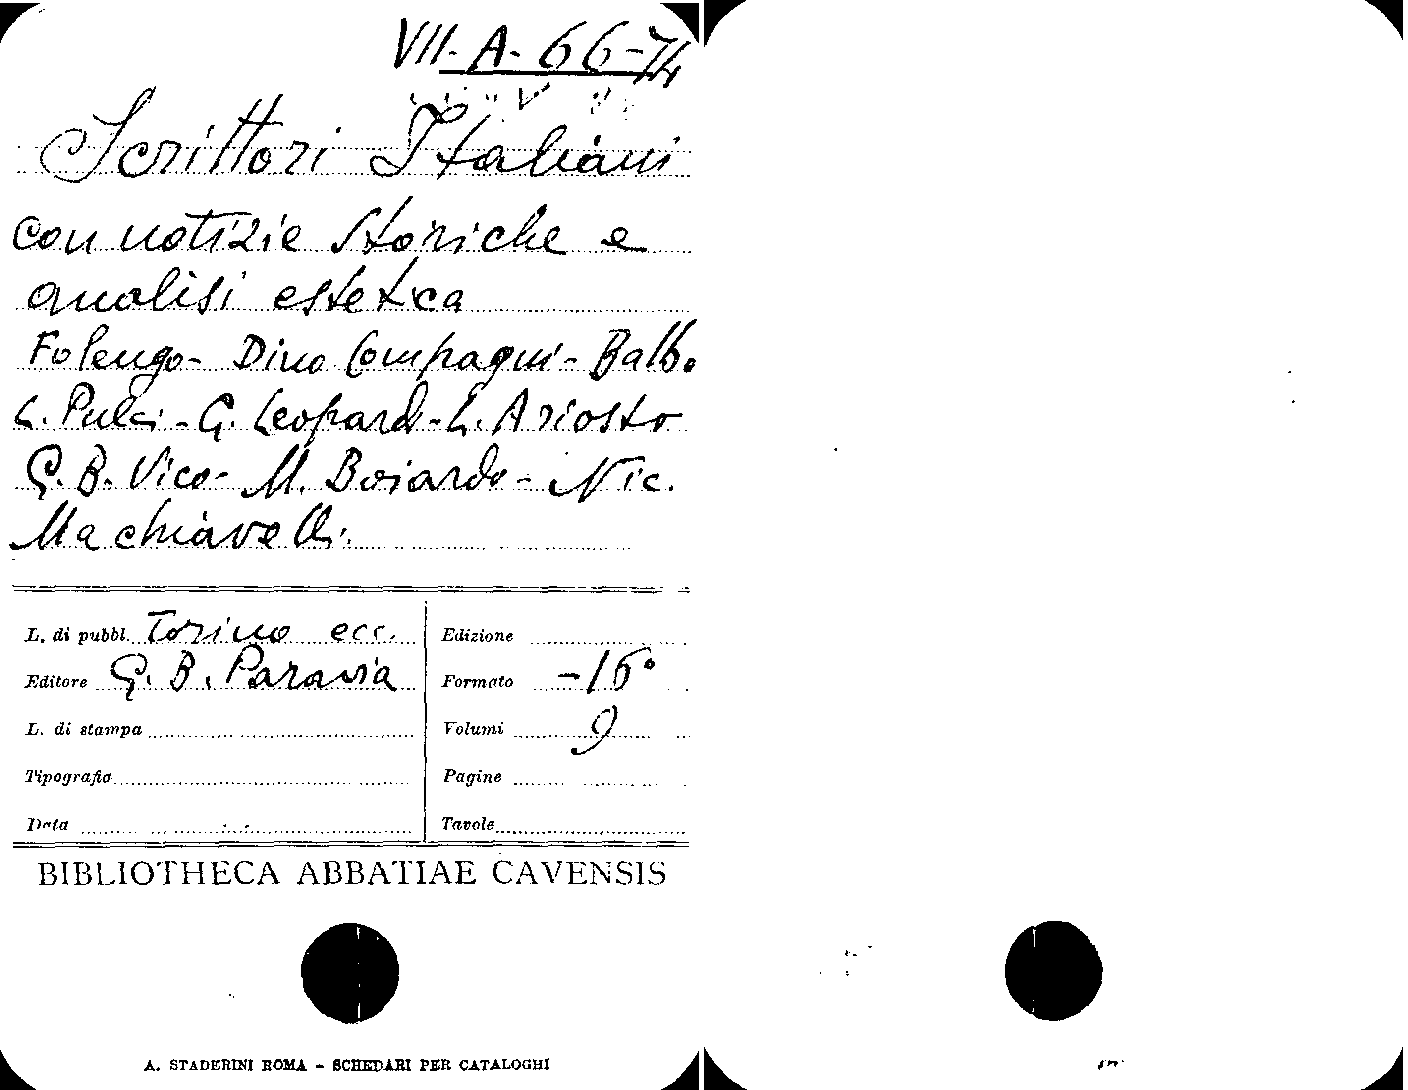 VII-A-66-74
Scrittori Italiani
con notizie storiche e
analisi estetica
Folengo- Dino Compagni- Balbo
L. Pulci- G. Leopardi- L. Ariosto
G. B. Vico- M. Boiardo- Nic.
Machiavelli.
L. di pubbl. Torino ecc.
Editore G. B. Paravia
L. di stampa
Tipografia
Data
Edizione
Formato -16°
Volumi 9
Pagine
Tavole
BIBLIOTHECA ABBATIAE CAVENSIS
A. STADERINI ROMA - SCHEDARI PER CATALOGHI